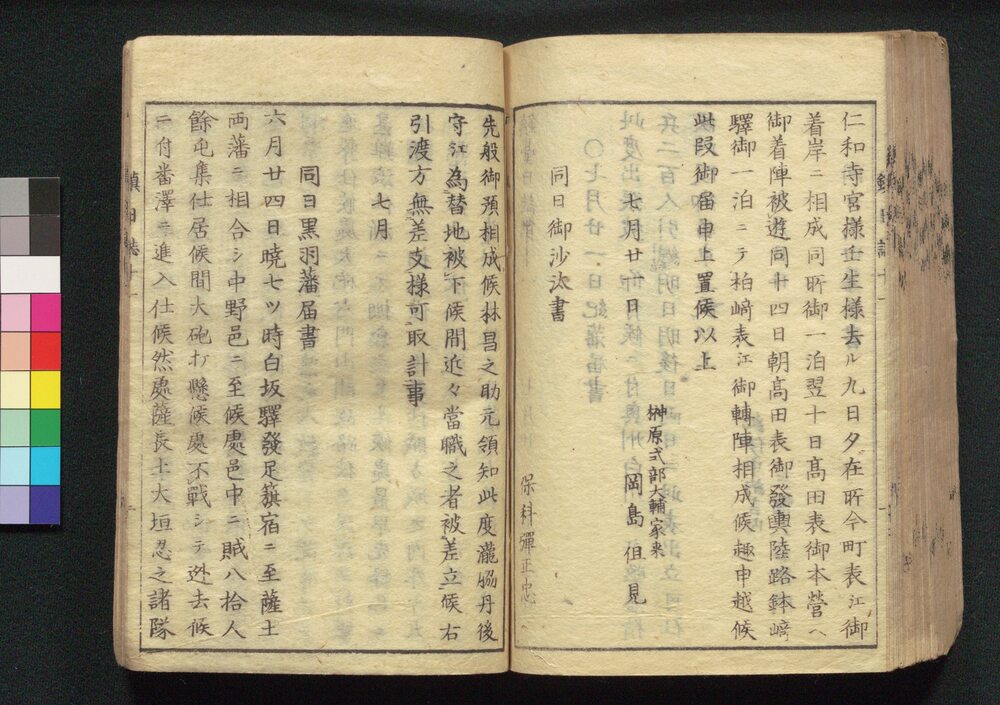 仁和寺宮様壬生様去ル九日夕在所今町表江御
着岸ニ相成同所御一泊翌十日髙田表御本營へ
御着陣被遊同十四日朝髙田表御發輿陸路鉢﨑
驛御一泊ニテ柏﨑表江御轉陣相成候趣申越候
此段御届申上置候以上
七月廿日
榊原式部大輔家来
岡島伹見
同日御沙汰書
保科彈正忠
先般御預相成候林昌之助元領知此度瀧脇丹後
守江為替地被下候間近々當職之者被差立候右
引渡方無差支様可取計事
七月
同日黒羽藩届書
六月廿四日曉七ツ時白坂驛發足籏宿ニ至薩土
两藩ニ相合シ中野邑ニ至候處邑中ニ賊八拾人
餘屯集仕居候間大砲打懸候處不戰シテ迯去候
ニ付番澤ヘ進入仕候然處薩長土大垣忍之諸隊
鎮日誌十一